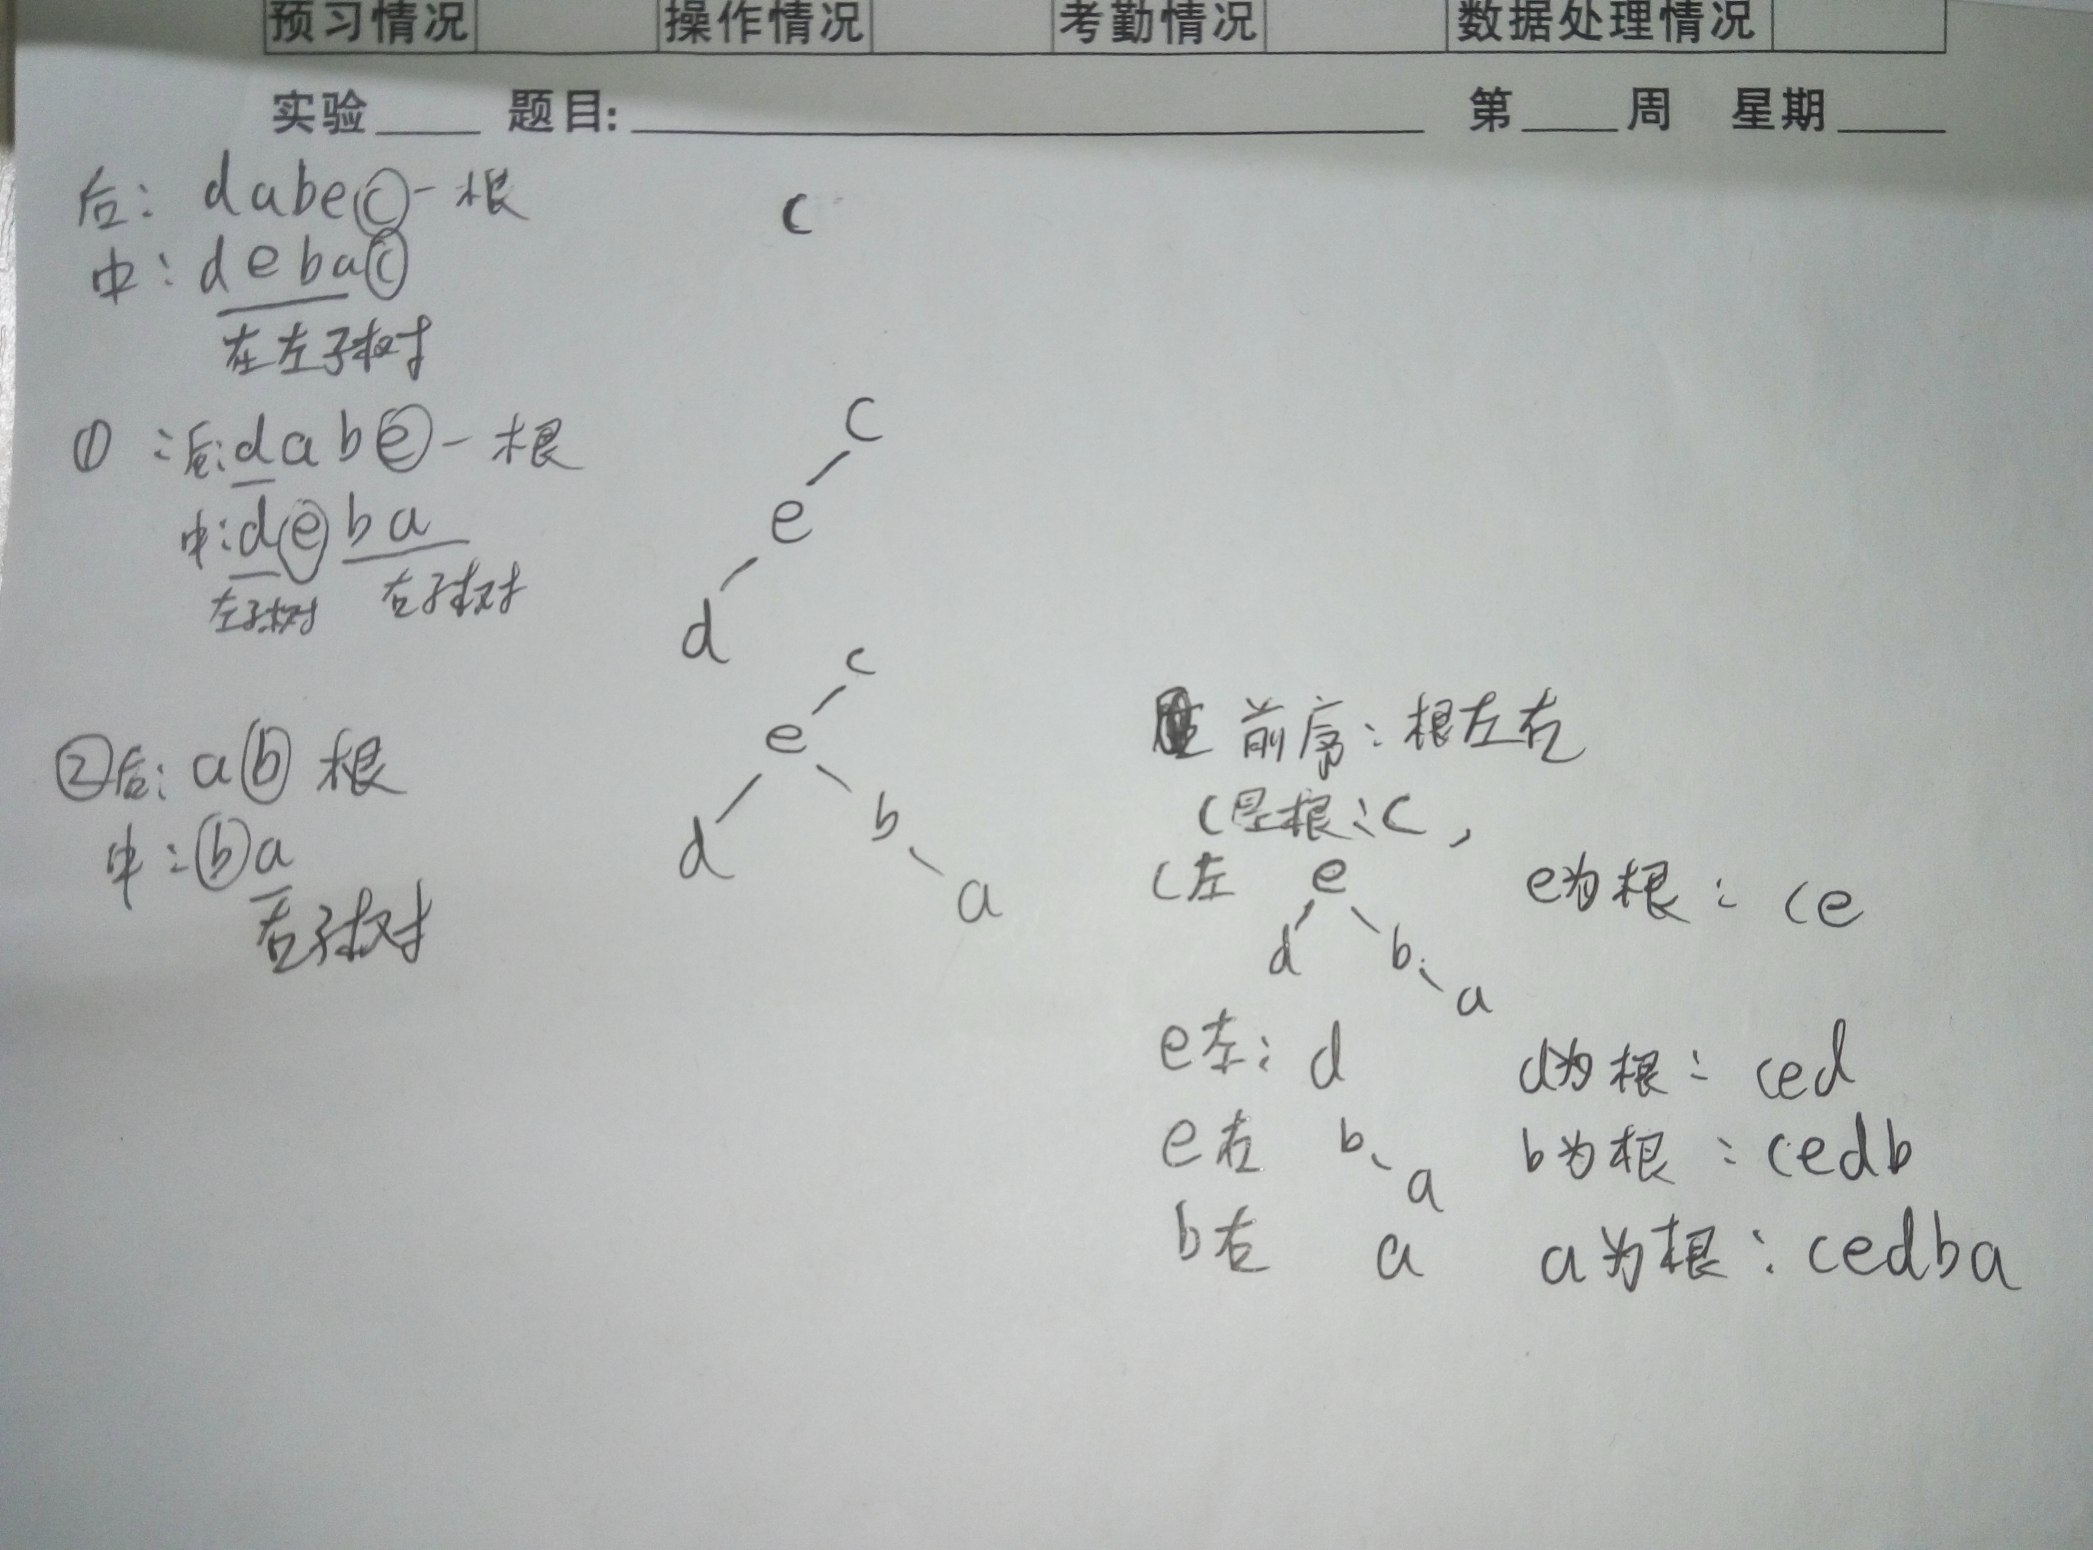 预习情况 操作情况 考勤情况 数据处理情况
实验 题目: 第 周 星期
后: dabec - 根
中: debac
在左子树
c
① ∴后: dabe - 根
中: deba
左子树 右子树
c
e
d
② 后: ab 根
中: ba
右子树
c
e
d b
a
前序: 根左右
c是根 ∴ c,
c左 e e为根: ce
d b
a
e左: d d为根: ced
e右 b a b为根: cedb
b右 a a为根: cedba